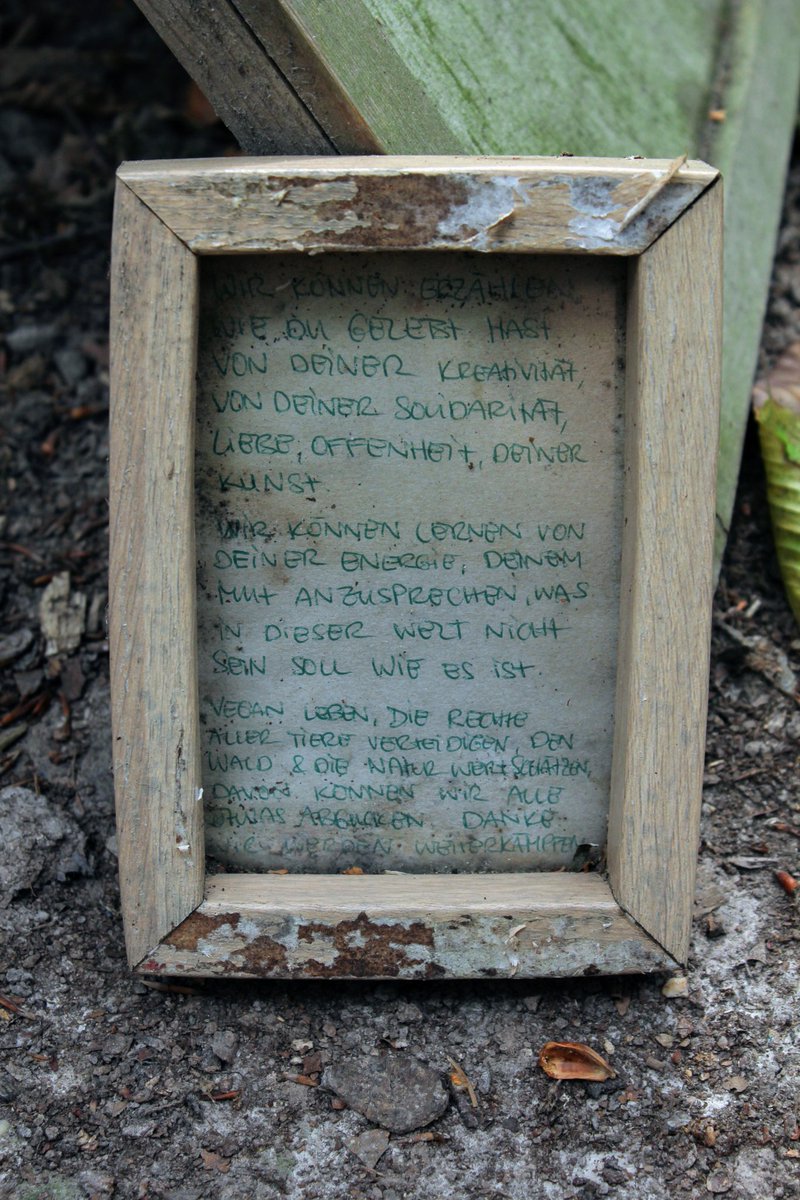 WIR KÖNNEN ERZÄHLEN
WIE DU GELEBT HAST
VON DEINER KREATIVITÄT,
VON DEINER SOLIDARITÄT,
LIEBE, OFFENHEIT, DEINER
KUNST.
WIR KÖNNEN LERNEN VON
DEINER ENERGIE, DEINEM
MUT ANZUSPRECHEN, WAS
IN DIESER WELT NICHT
SEIN SOLL WIE ES IST.
VEGAN LEBEN, DIE RECHTE
ALLER TIERE VERTEIDIGEN, DEN
WALD & DIE NATUR WERTSCHÄTZEN,
DAVON KÖNNEN WIR ALLE
ETWAS ABGUCKEN. DANKE
WIR WERDEN WEITERKÄMPFEN